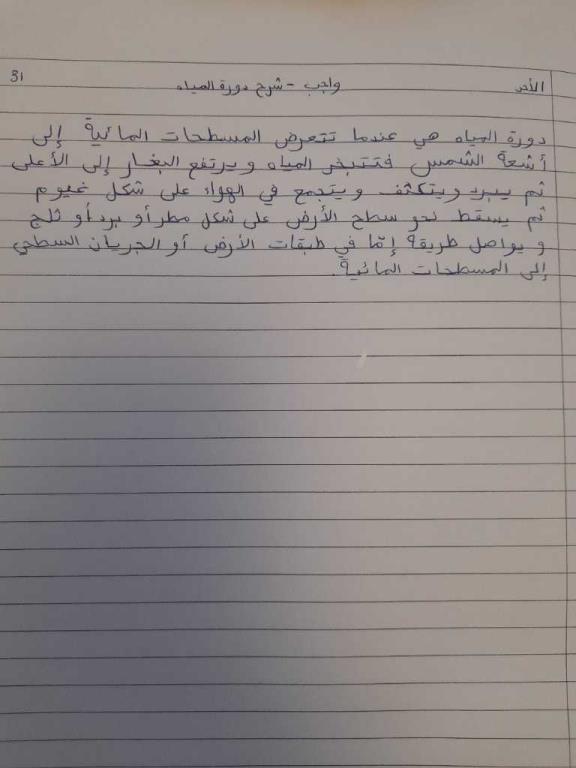 الأحد واجب - شرح دورة المياه 31
دورة المياه هي عندما تتعرض المسطحات المائية إلى
أشعة الشمس فتتبخر المياه ويرتفع البخار إلى الأعلى
ثم يبرد ويتكثف ويتجمع في الهواء على شكل غيوم
ثم يسقط نحو سطح الأرض على شكل مطر أو برد أو ثلج
ويواصل طريقة إمّا في طبقات الأرض أو الجريان السطحي
إلى المسطحات المائية.